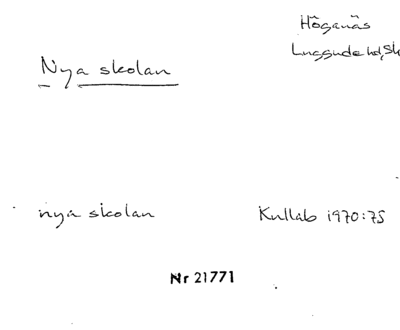 Höganäs
Luggude hd, Sk
Nya skolan
nya skolan
Kullab 1970:75
Nr 21771